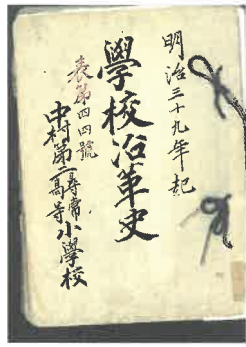 明治三十九年起
學校沿革史
表第四四號
中村第二尋常高等小學校